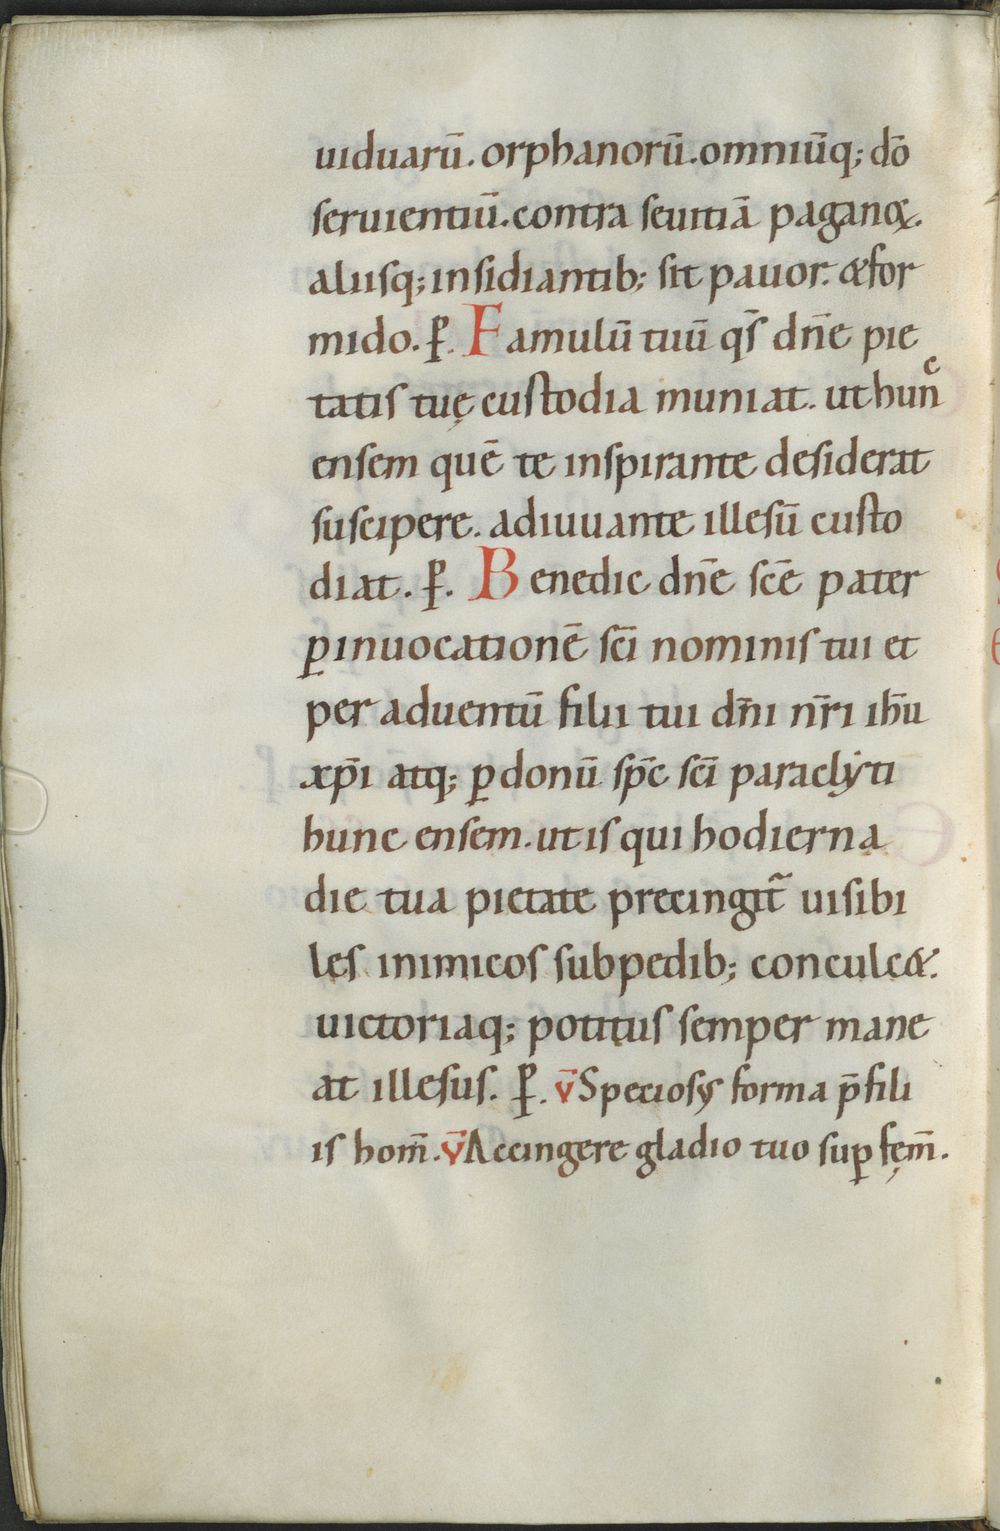 uiduarū. orphanorū. omniūq; dō
seruientiū. contra seuitiā paganoꝝ.
aliisq; insidiantib; sit pauor. &for
mido. ꝑ. Famulū tuū qs̄ dn̄e pie
tatis tuę custodia muniat. ut hunc̄
ensem quē te inspirante desiderat
suscipere. adiuuante illesū custo
diat. ꝑ. Benedic dn̄e scē pater
ꝑ inuocationē scī nominis tui et
per aduentū filii tui dn̄i nr̄i ih̄u
xp̄i atq; ꝑ donū sp̄c scī paraclẏti
hunc ensem. ut is qui hodierna
die tua pietate precingit᷑ uisibi
les inimicos sub pedib; conculc&.
uictoriaq; potitus semper mane
at illesus. ꝑ. v̄ Speciosꝰ forma p̄ fili
is hom̄. v̄ Accingere gladio tuo suꝑ fęm̄.